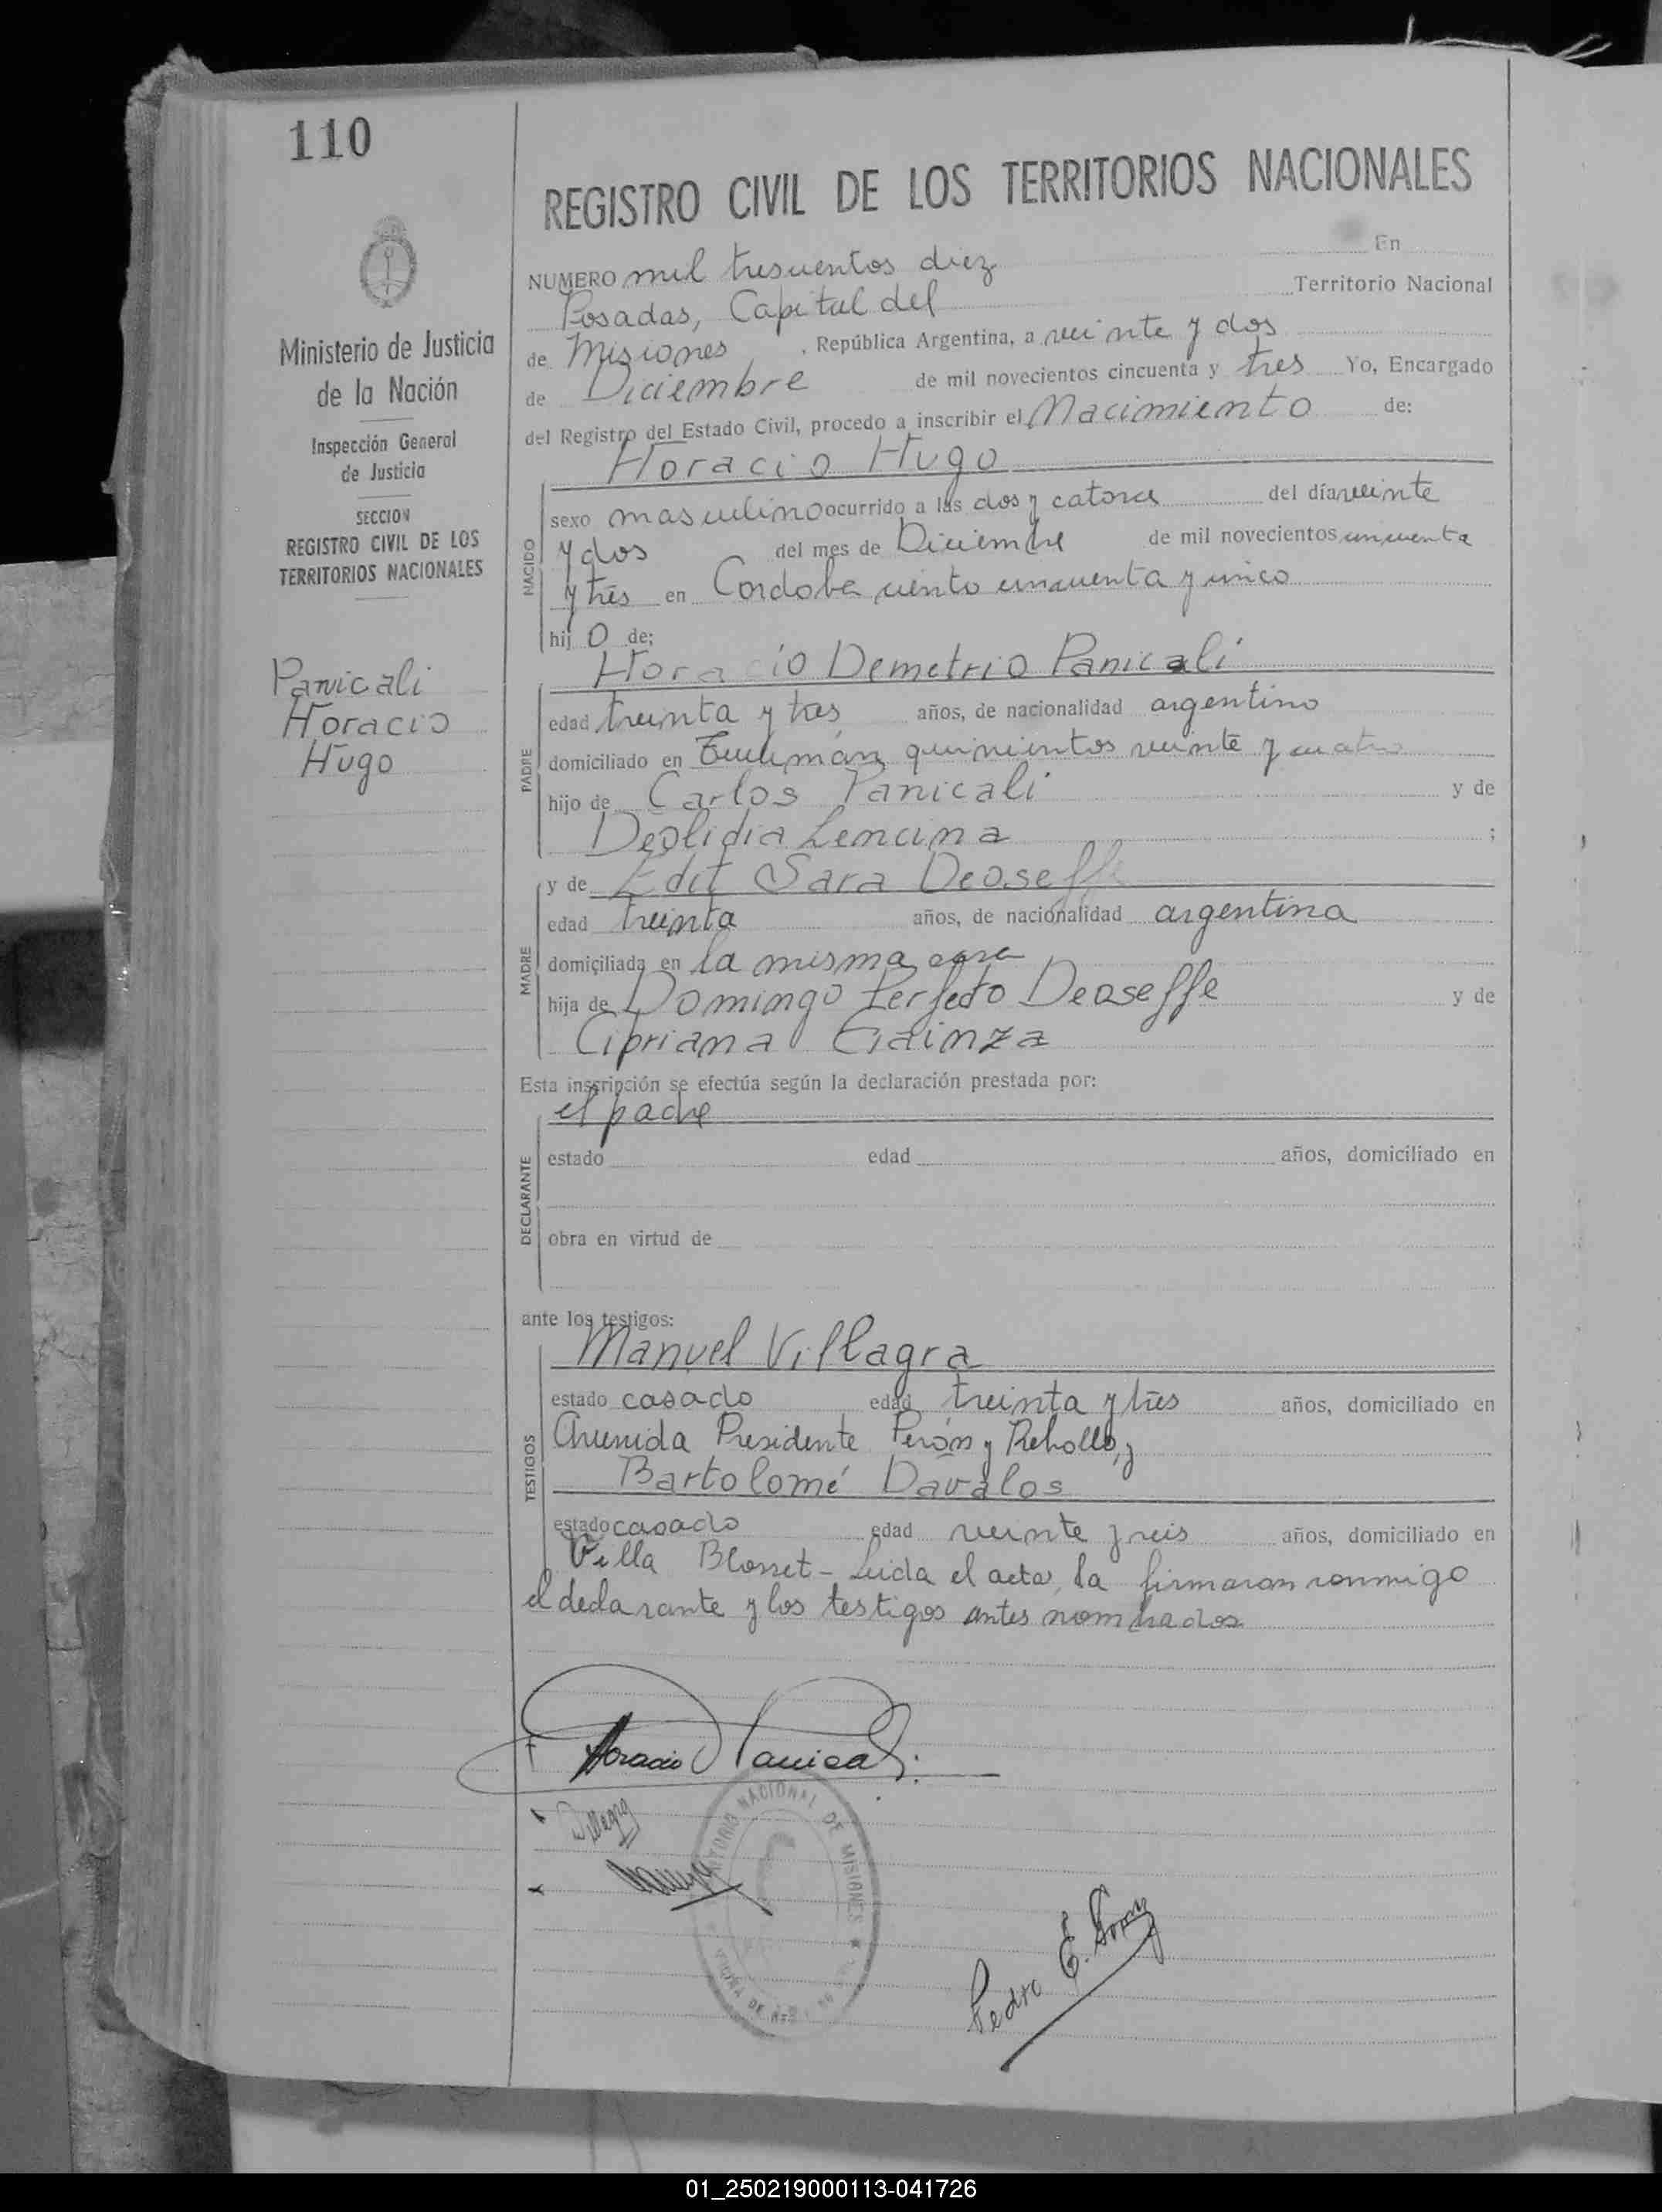 110
REGISTRO CIVIL DE LOS TERRITORIOS NACIONALES
Ministerio de Justicia
de la Nación
Inspección General
de Justicia
SECCION
REGISTRO CIVIL DE LOS
TERRITORIOS NACIONALES
Panicali
Horacio
Hugo
NUMERO mil trescientos diez En
Posadas, Capital del Territorio Nacional
de Misiones, República Argentina, a veinte y dos
de Diciembre de mil novecientos cincuenta y tres Yo, Encargado
del Registro del Estado Civil, procedo a inscribir el Nacimiento de:
Horacio Hugo
NACIDO
sexo masculino ocurrido a las dos y catorce del día veinte
y dos del mes de Diciembre de mil novecientos cincuenta
y tres en Cordoba ciento cincuenta y cinco
hijo de:
Horacio Demetrio Panicali
PADRE
edad treinta y tres años, de nacionalidad argentino
domiciliado en Tucumán quinientos veinte y cuatro
hijo de Carlos Panicali y de
Deolidia Lencina ;
MADRE
y de Edit Sara Deoseffe
edad treinta años, de nacionalidad argentina
domiciliada en la misma casa
hija de Domingo Perfecto Deoseffe y de
Cipriana Gainza
Esta inscripción se efectúa según la declaración prestada por:
el padre
DECLARANTE
estado edad años, domiciliado en
obra en virtud de
ante los testigos:
Manuel Villagra
TESTIGOS
estado casado edad treinta y tres años, domiciliado en
Avenida Presidente Perón y Rebollo, y
Bartolomé Davalos
estado casado edad veinte y seis años, domiciliado en
Villa Blosset - Leida el acta, la firmaron conmigo
el declarante y los testigos antes nombrados
Horacio Panicali
Villagra
NACIONAL DE MISIONES
Pedro E.
01_250219000113-041726